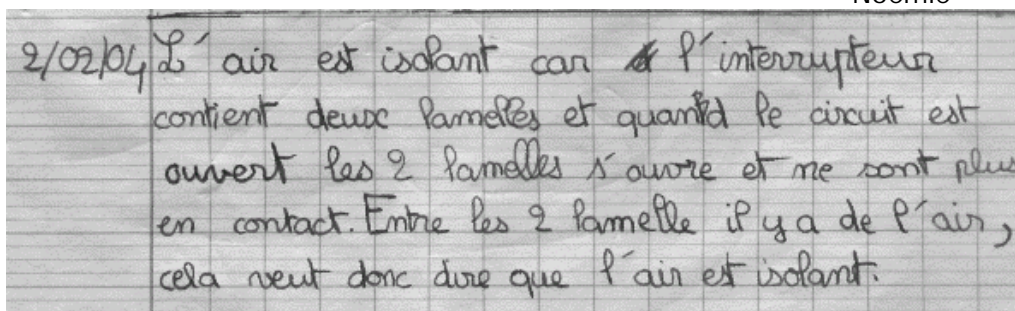 2/02/04 L'air est isolant car l'interrupteur
contient deux lamelles et quand le circuit est
ouvert les 2 lamelles s'ouvre et ne sont plus
en contact. Entre les 2 lamelle il y a de l'air,
cela veut donc dire que l'air est isolant.